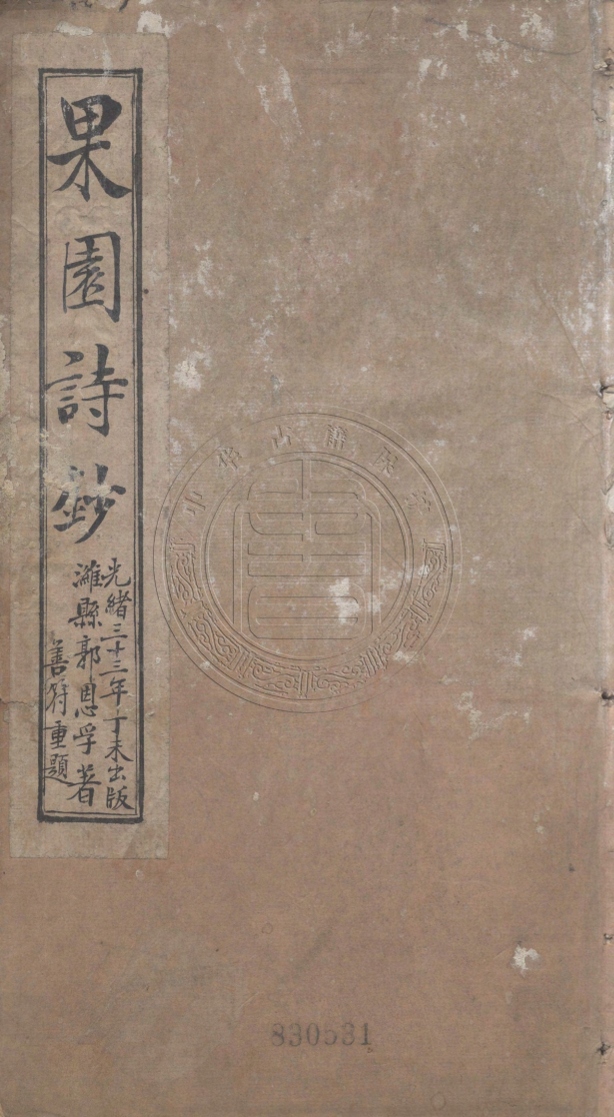 果園詩鈔
光緒三十三年丁未出版
濰縣郭恩孚著
善符重題
830531